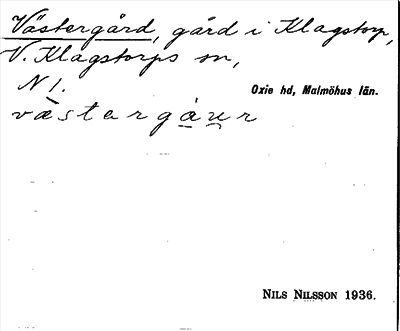 Västergård, gård i Klagstorp,
V. Klagstorps sn,
N 1.
Oxie hd, Malmöhus län.
västergaur
NILS NILSSON 1936.